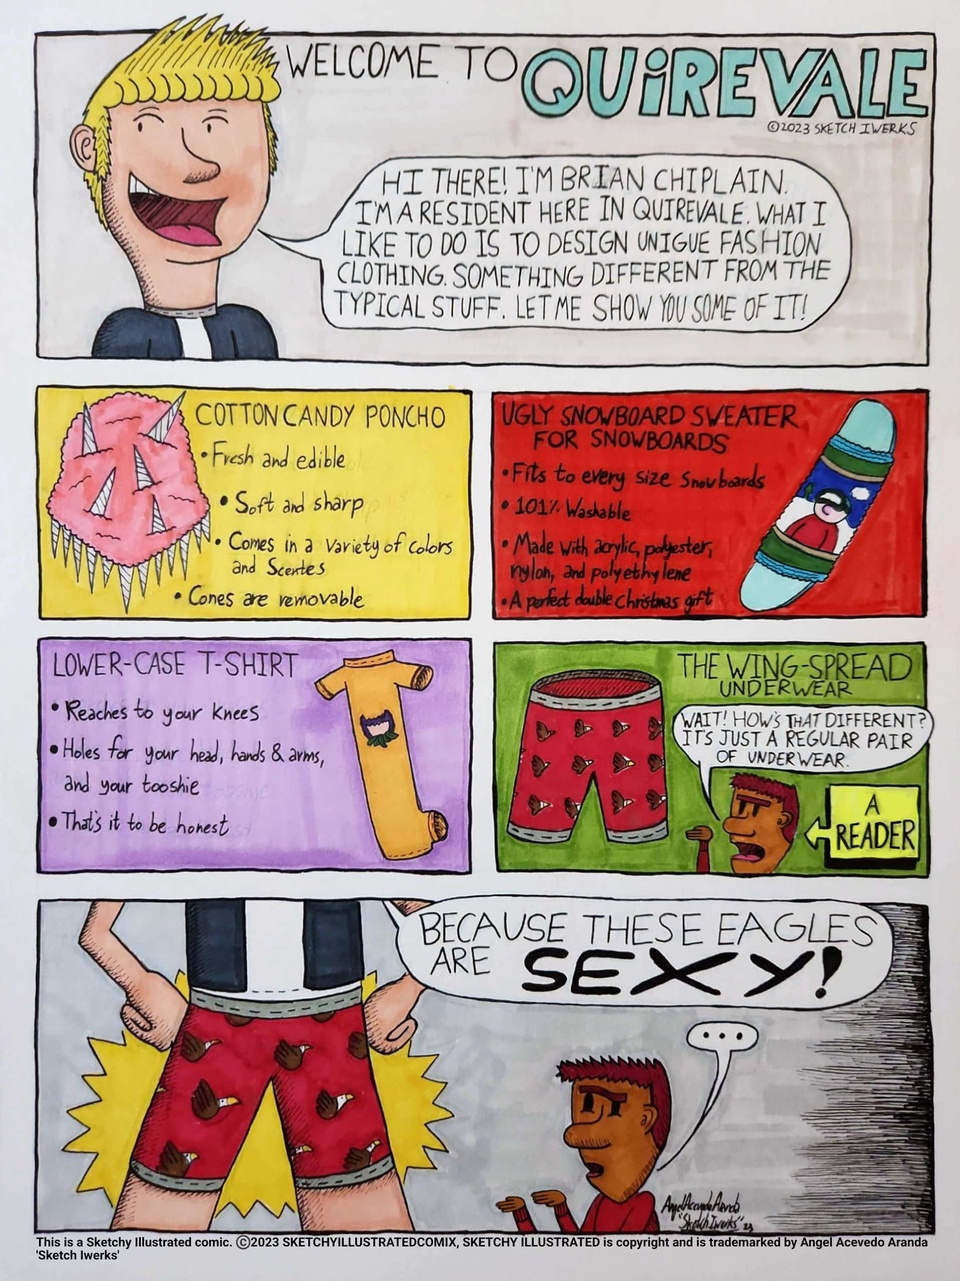 WELCOME TO QUiREVALE
©2023 SKETCH IWERKS
HI THERE! I'M BRIAN CHIPLAIN.
I'M A RESIDENT HERE IN QUIREVALE. WHAT I
LIKE TO DO IS TO DESIGN UNIGUE FASHION
CLOTHING. SOMETHING DIFFERENT FROM THE
TYPICAL STUFF. LET ME SHOW YOU SOME OF IT!
COTTON CANDY PONCHO
• Fresh and edible
• Soft and sharp
• Comes in a variety of colors
and Scentes
• Cones are removable
UGLY SNOWBOARD SWEATER
FOR SNOWBOARDS
• Fits to every size Snowboards
• 101% Washable
• Made with acrylic, polyester,
nylon, and polyethylene
• A perfect double Christmas gift
LOWER-CASE T-SHIRT
• Reaches to your knees
• Holes for your head, hands & arms,
and your tooshie
• That's it to be honest
THE WING-SPREAD
UNDERWEAR
WAIT! HOW'S THAT DIFFERENT?
IT'S JUST A REGULAR PAIR
OF UNDERWEAR.
A
READER
BECAUSE THESE EAGLES
ARE SEXY!
...
Angel Acevedo Aranda
"Sketch Iwerks" 23
This is a Sketchy Illustrated comic. ©2023 SKETCHYILLUSTRATEDCOMIX, SKETCHY ILLUSTRATED is copyright and is trademarked by Angel Acevedo Aranda
'Sketch Iwerks'